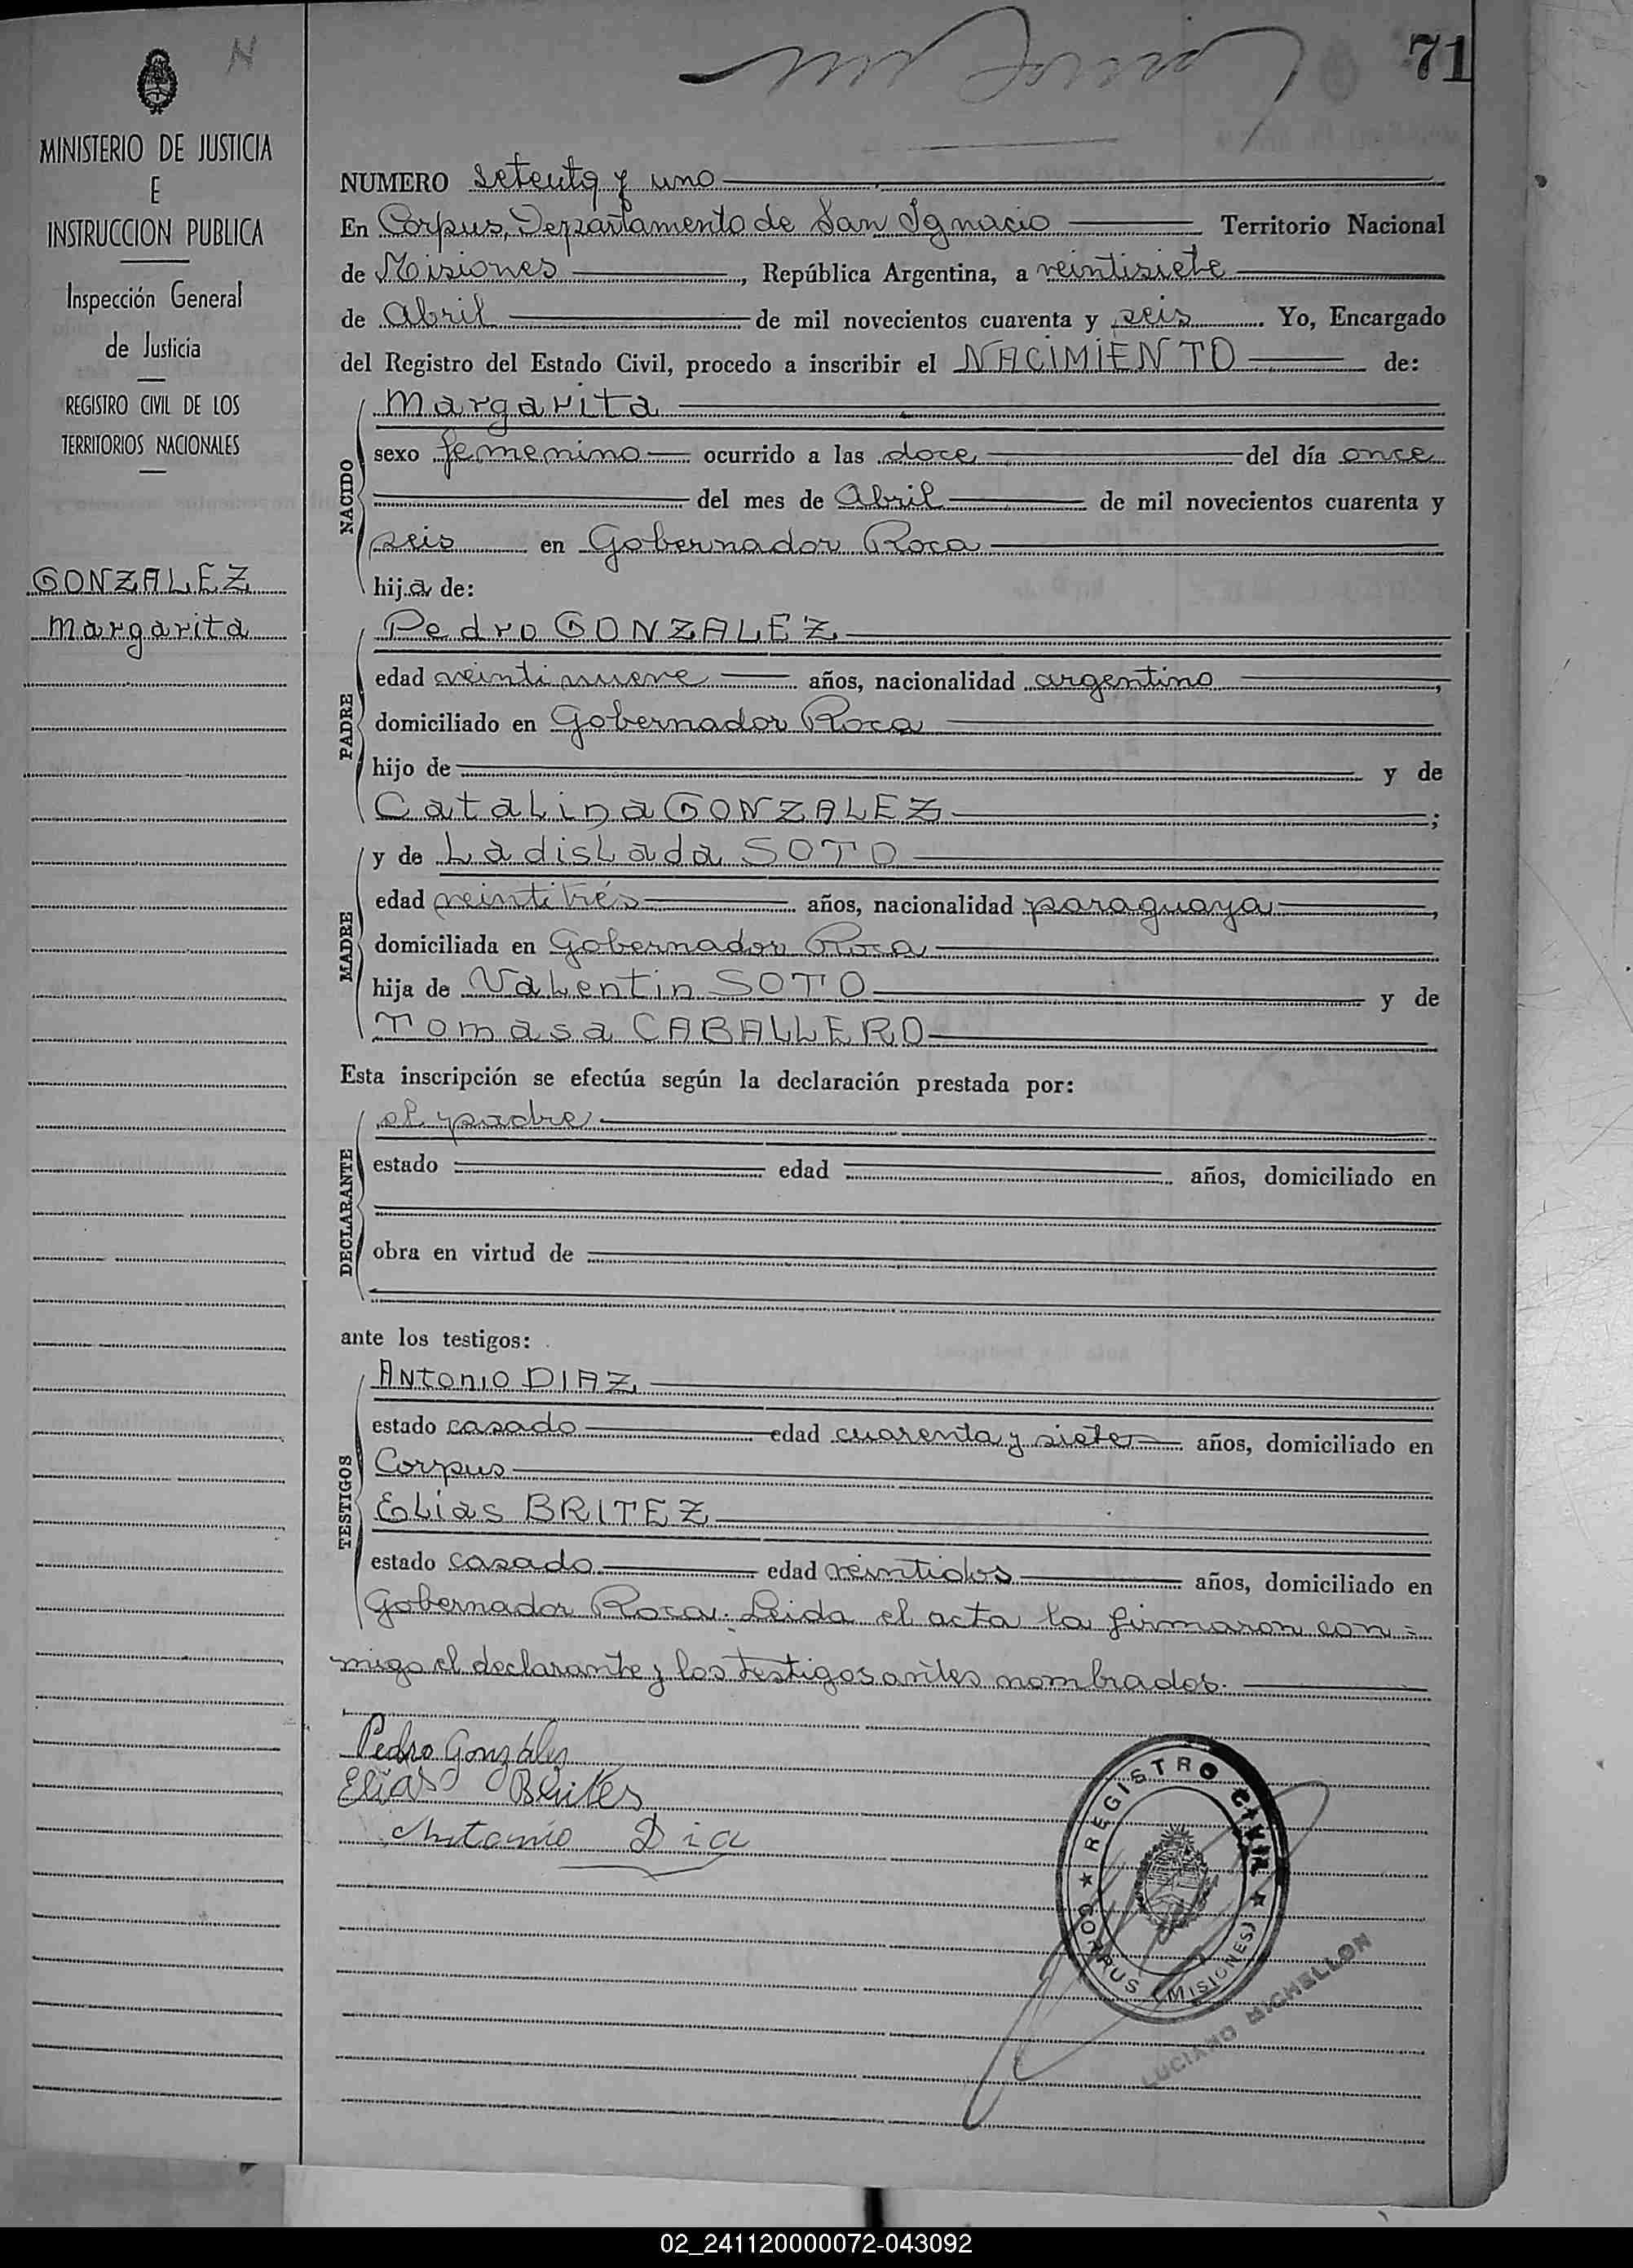 N
71
MINISTERIO DE JUSTICIA
E
INSTRUCCION PUBLICA
Inspección General
de Justicia
REGISTRO CIVIL DE LOS
TERRITORIOS NACIONALES
GONZALEZ
Margarita
NUMERO setenta y uno
En Corpus, Departamento de San Ignacio Territorio Nacional
de Misiones, República Argentina, a veintisiete
de Abril de mil novecientos cuarenta y seis. Yo, Encargado
del Registro del Estado Civil, procedo a inscribir el NACIMIENTO de:
NACIDO
Margarita
sexo femenino ocurrido a las doce del día once
del mes de Abril de mil novecientos cuarenta y
seis en Gobernador Roca
hija de:
PADRE
Pedro GONZALEZ
edad veintinueve años, nacionalidad argentino,
domiciliado en Gobernador Roca
hijo de y de
Catalina GONZALEZ;
MADRE
y de Ladislada SOTO
edad veintitrés años, nacionalidad paraguaya,
domiciliada en Gobernador Roca
hija de Valentin SOTO y de
Tomasa CABALLERO
Esta inscripción se efectúa según la declaración prestada por:
DECLARANTE
el padre
estado edad años, domiciliado en
obra en virtud de
ante los testigos:
TESTIGOS
Antonio DIAZ
estado casado edad cuarenta y siete años, domiciliado en
Corpus
Elias BRITEZ
estado casado edad veintidos años, domiciliado en
Gobernador Roca. Leida el acta la firmaron con=
migo el declarante y los testigos antes nombrados.
Pedro González
Elías Brites
Antonio Dia
REGISTRO CIVIL
CORPUS (MISIONES)
LUCIANO MICHELLON
02_241120000072-043092